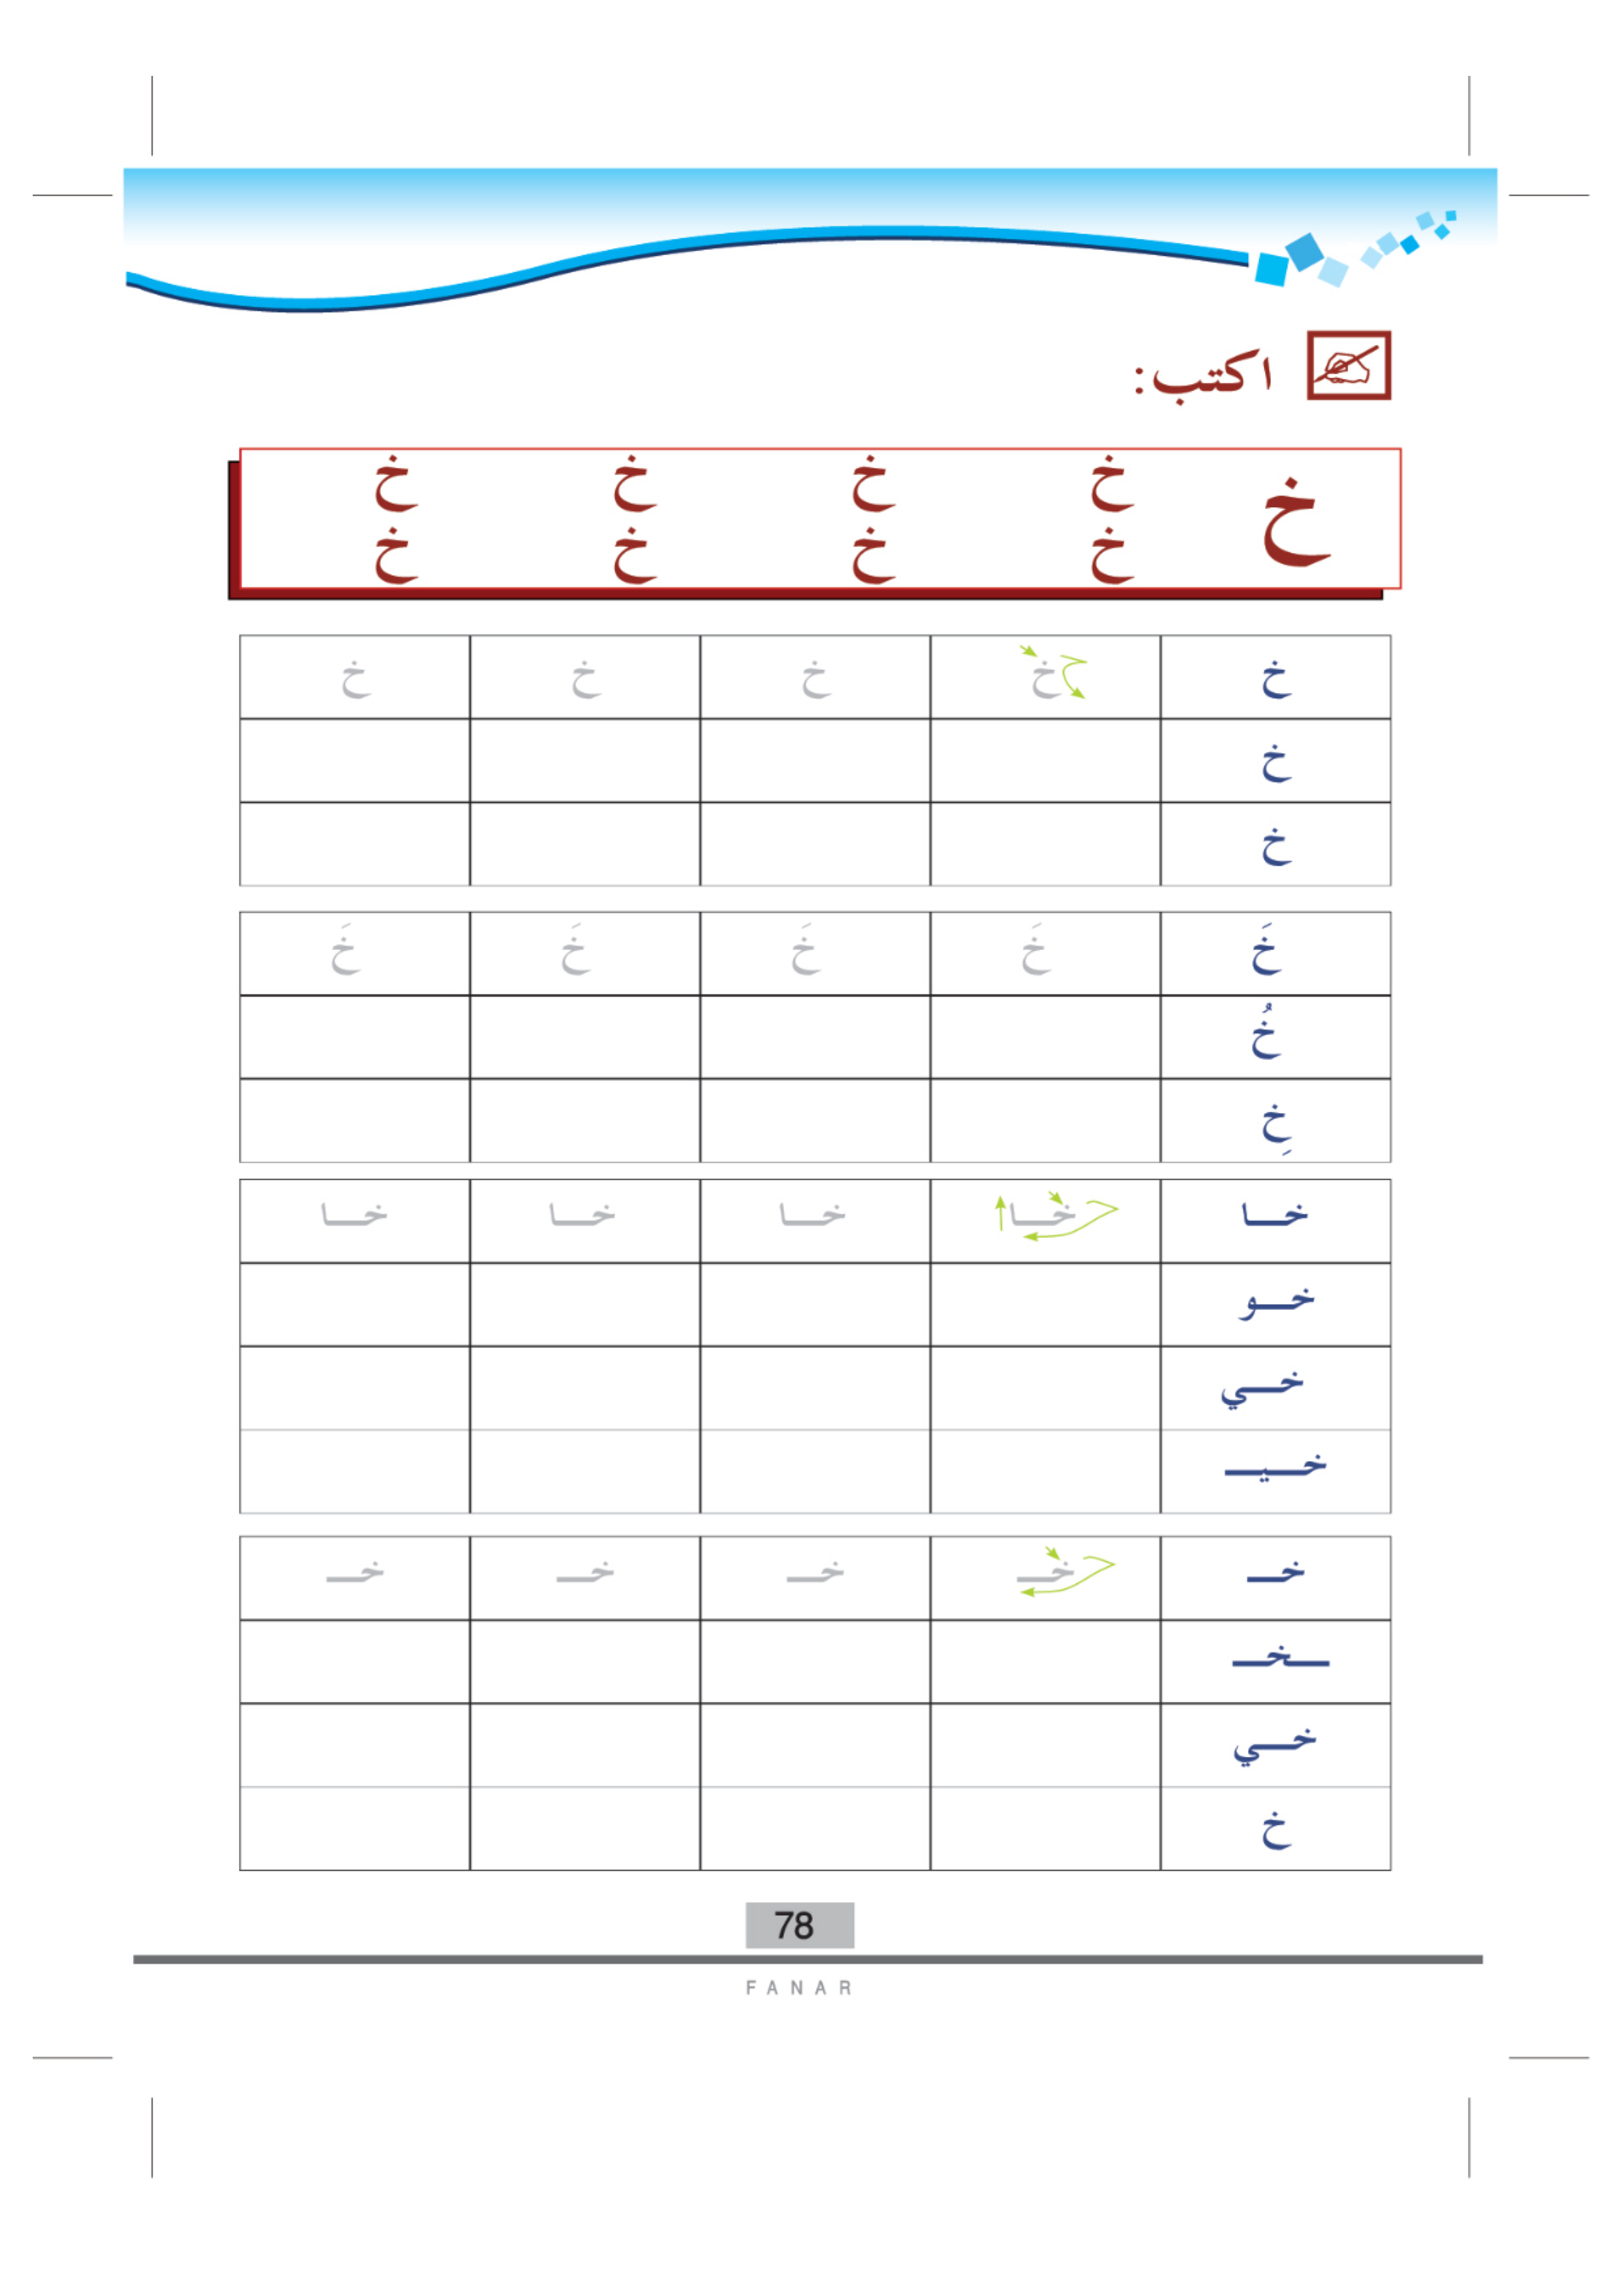 اكتب:
خ خ خ خ خ
خ خ خ خ
خ خ خ خ خ
خ
خ
خَ خَ خَ خَ خَ
خُ
خِ
خــا خــا خــا خــا خــا
خــو
خــي
خــيــ
خــ خــ خــ خــ خــ
ــخــ
خــي
خ
78
FANAR